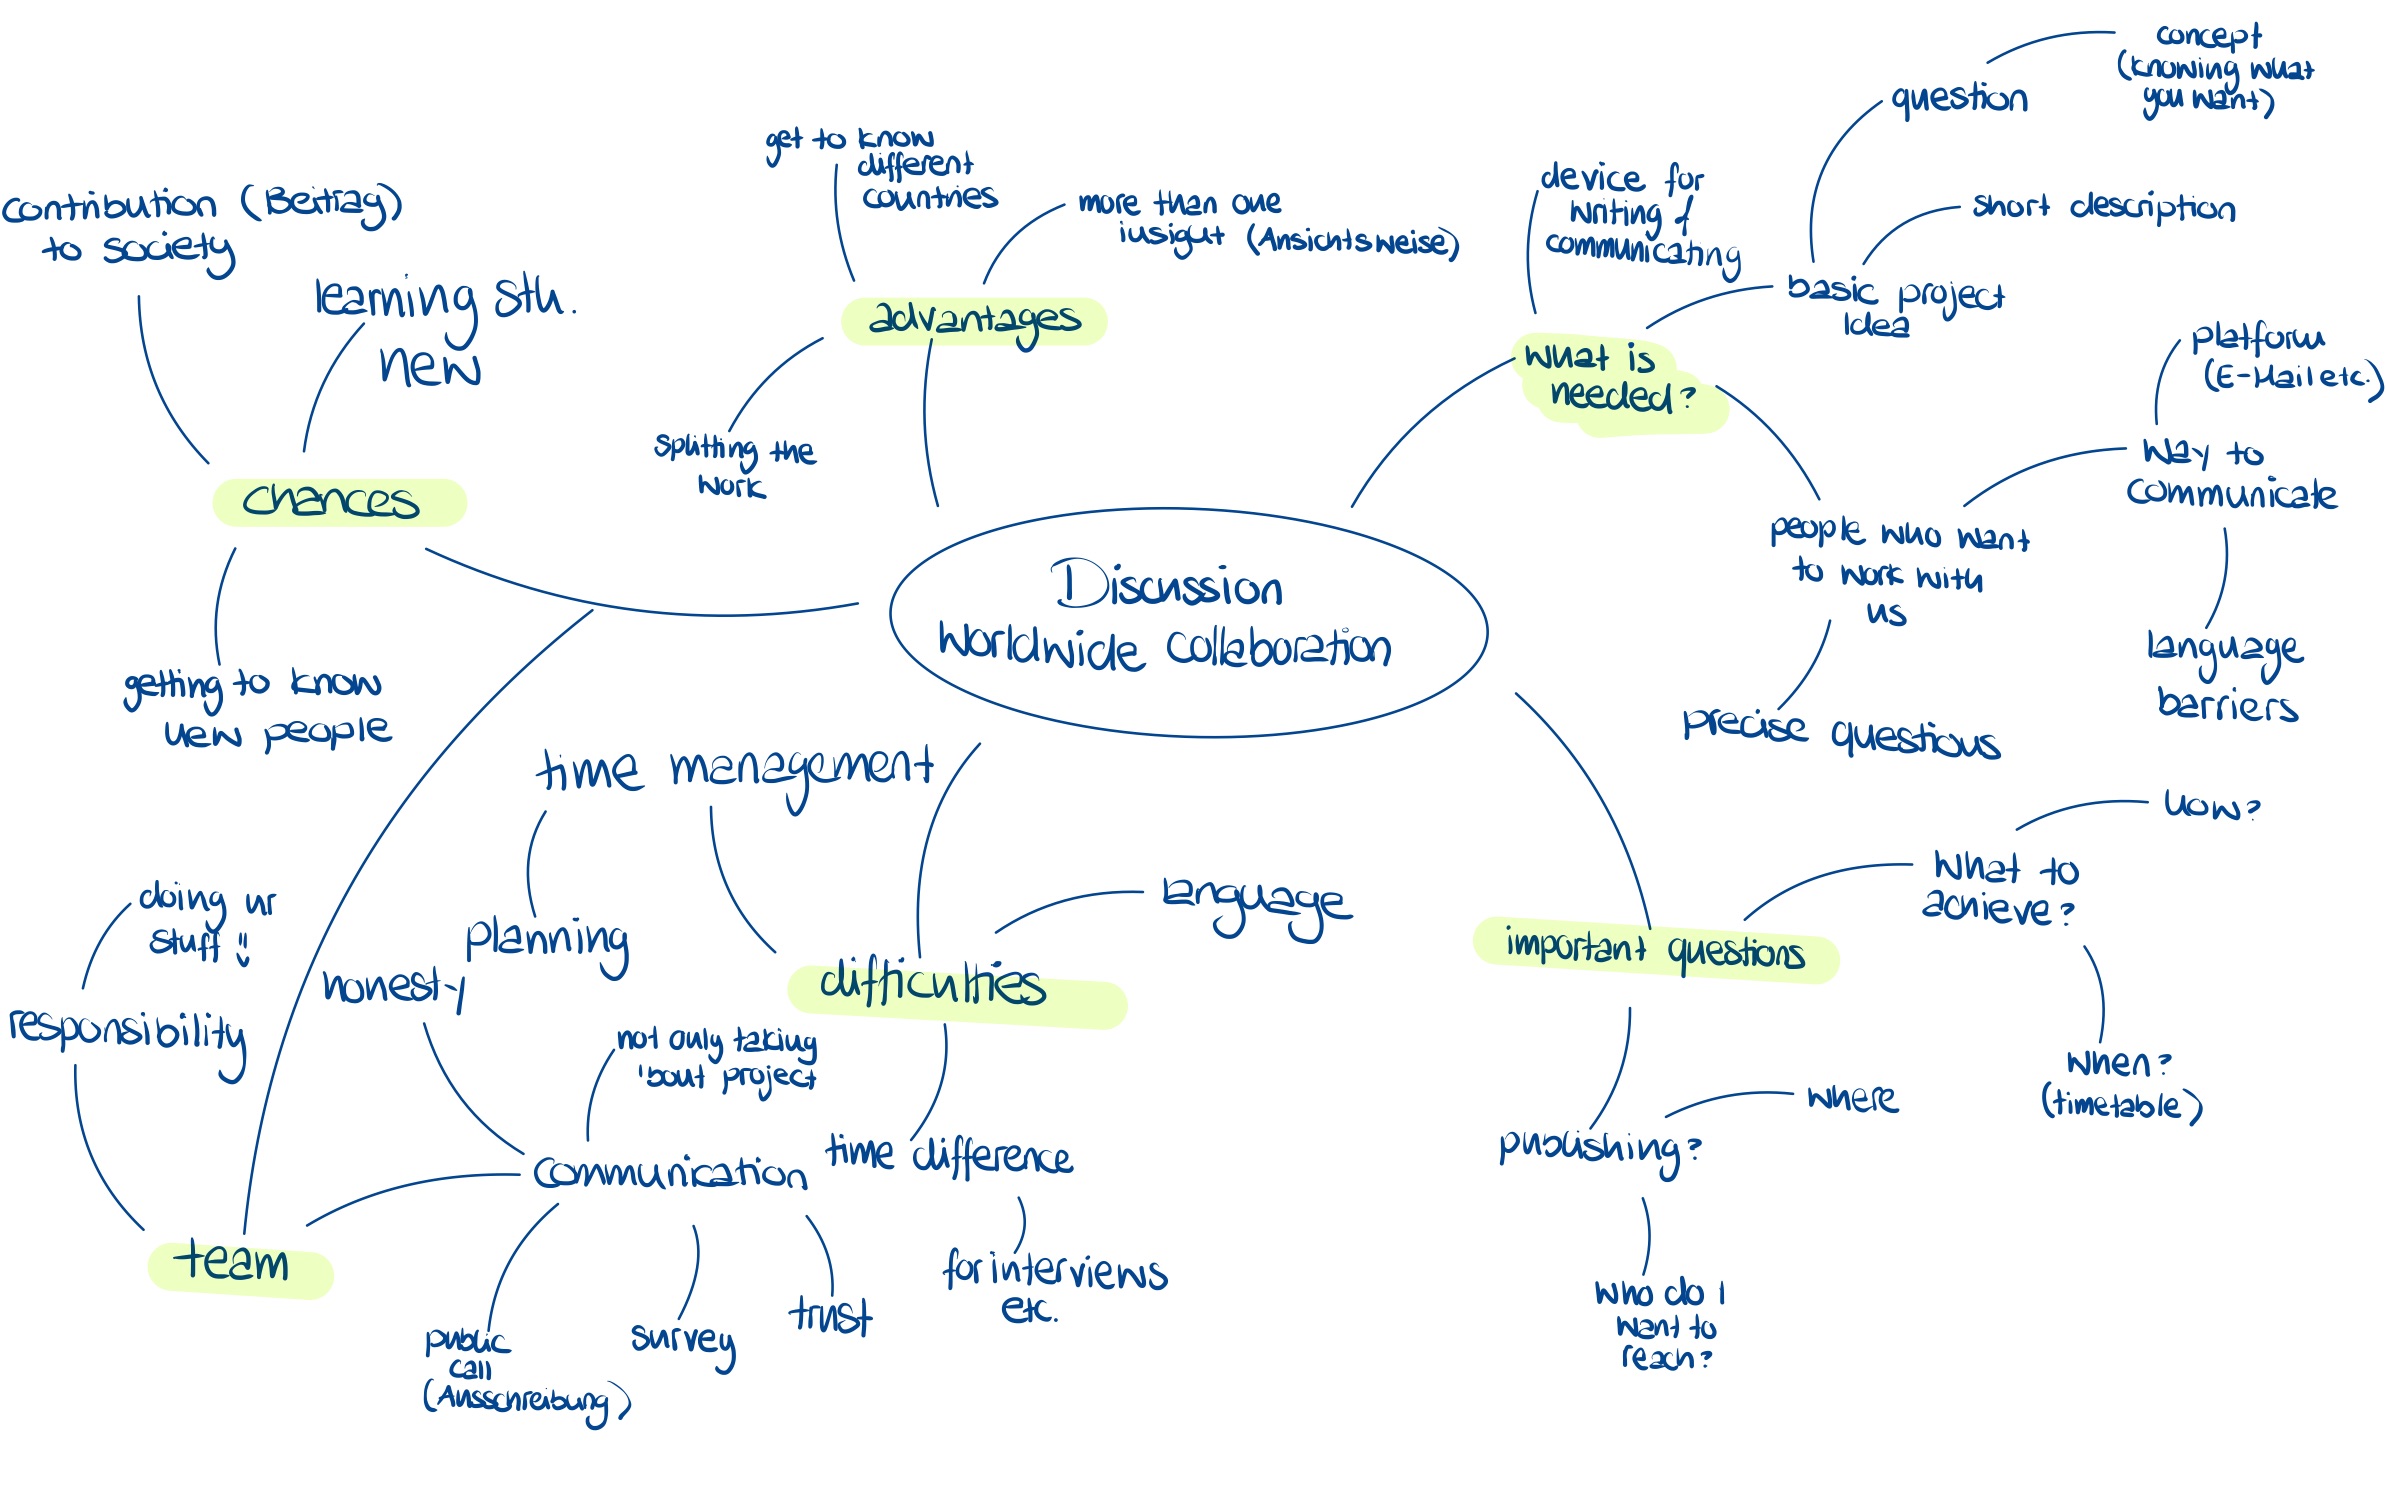 Discussion
Worldwide collaboration
advantages
get to know
different
countries
more than one
insight (Ansichtsweise)
splitting the
work
what is
needed?
device for
writing &
communicating
basic project
idea
question
concept
(knowing what
you want)
short description
people who want
to work with
us
way to
communicate
platform
(E-Mail etc.)
language
barriers
precise questions
important questions
what to
achieve?
how?
when?
(timetable)
publishing?
where
who do I
want to
reach?
difficulties
time management
planning
language
time difference
for interviews
etc.
chances
contribution (Beitrag)
to society
learning sth.
new
getting to know
new people
team
responsibility
doing ur
stuff !!
communication
honesty
not only taking
'bout project
public
call
(Ausschreibung)
survey
trust